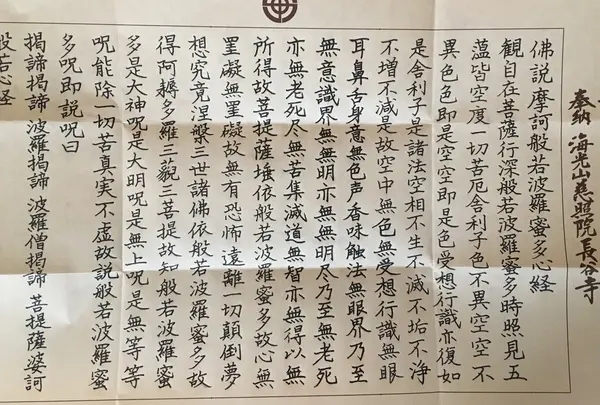 奉納 海光山慈照院長谷寺
佛説摩訶般若波羅蜜多心経
観自在菩薩行深般若波羅蜜多時照見五
蘊皆空度一切苦厄舎利子色不異空空不
異色色即是空空即是色受想行識亦復如
是舎利子是諸法空相不生不滅不垢不浄
不増不減是故空中無色無受想行識無眼
耳鼻舌身意無色声香味触法無眼界乃至
無意識界無無明亦無無明尽乃至無老死
亦無老死尽無苦集滅道無智亦無得以無
所得故菩提薩埵依般若波羅蜜多故心無
罣礙無罣礙故無有恐怖遠離一切顛倒夢
想究竟涅槃三世諸佛依般若波羅蜜多故
得阿耨多羅三藐三菩提故知般若波羅蜜
多是大神呪是大明呪是無上呪是無等等
呪能除一切苦真実不虚故説般若波羅蜜
多呪即説呪曰
揭諦揭諦 波羅揭諦 波羅僧揭諦 菩提薩婆訶
般若心経